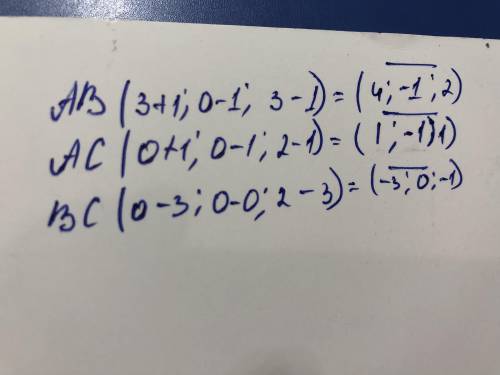 AB (3+1; 0-1; 3-1) = (4; -1; 2)
AC (0+1; 0-1; 2-1) = (1; -1; 1)
BC (0-3; 0-0; 2-3) = (-3; 0; -1)